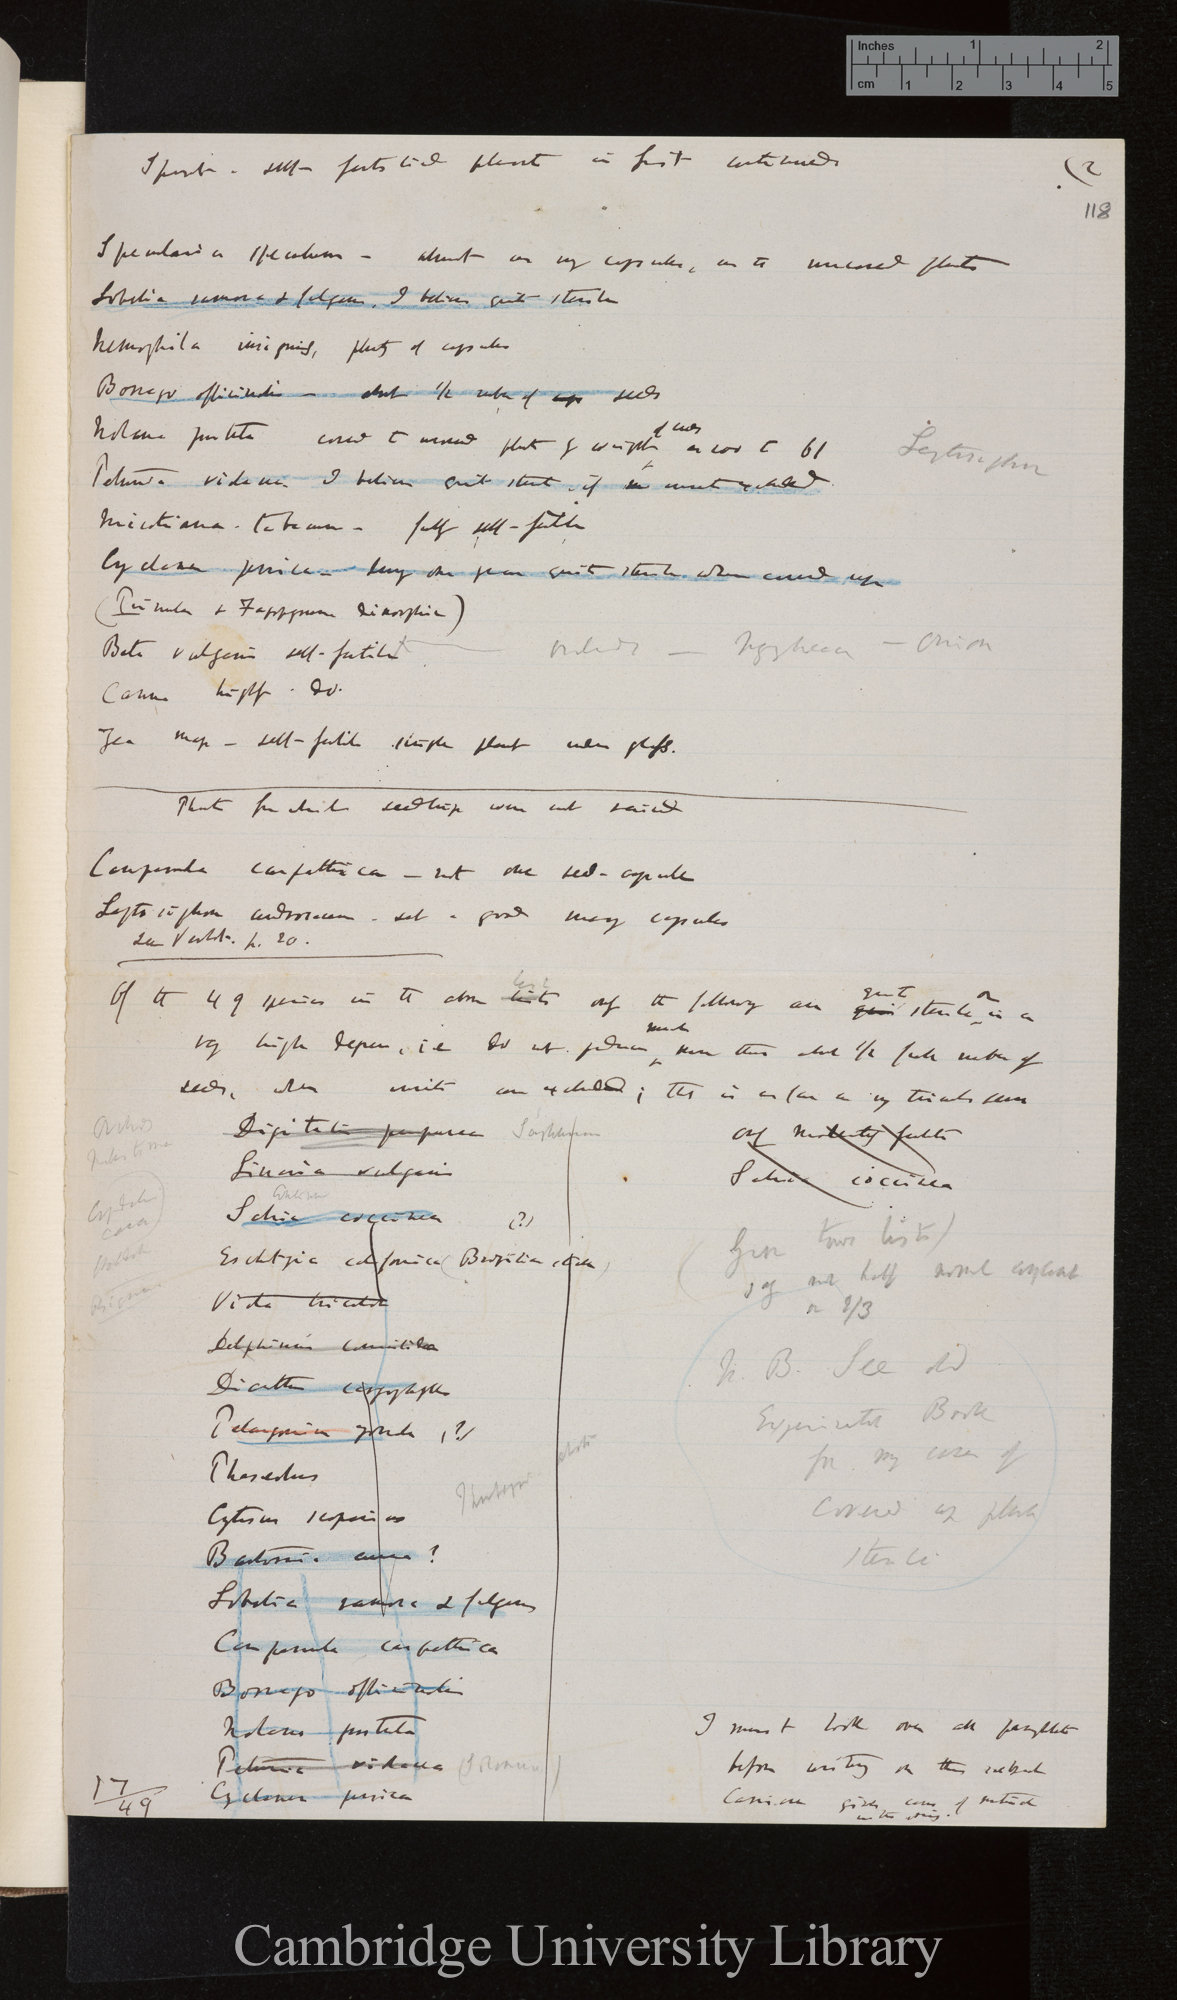 Inches 1 2
cm 1 2 3 4 5
self-fertilised plants in first continued
(2
118
Specularia speculum - almost as many capsules, as to uncovered plants
Lobelia ramosa & fulgens, I believe quite sterile
Nemophila insignis, plenty of capsules
Borrago officinalis - about 1/2 number of seeds
Nolana prostrata covered to uncovered plants by weight of seeds as 100 to 61
Leptosiphon
Petunia violacea I believe quite sterile if insects excluded.
Nicotiana tabacum - fully self-fertile
Cyclamen persicum - during one year quite sterile when covered up
(Primula & Fagopyrum dimorphic)
Beta vulgaris self-fertile
orchids — Nymphaea — Onion
Canna highly do.
Zea mays - self-fertile single plant under glass.
Plants from which seedlings were not raised
Campanula carpathica - not one seed-capsule
Leptosiphon androsaceus - set a good many capsules
See Verlot. p. 20.
Of the 49 species in the above lists only the following are quite sterile, or in a
very high degree, i.e. do not produce much more than about 1/2 full number of
seeds, when insects are excluded; this is as far as my trials seem
Digitalis purpurea
only moderately fertile
Linaria vulgaris
Salvia coccinea
Salvia coccinea (?)
Eschscholtzia californica (Brazilian stock)
(Give two lists)
say not half normal
or 2/3
Viola tricolor
Delphinium consolida
N. B. See old
Experimental Book
for my cases of
Covered up plants
sterile
Dianthus caryophyllus
Pelargonium zonale (?)
Phaseolus
Cytisus scoparius
Bartonia aurea?
Lobelia ramosa & fulgens
Campanula carpathica
Borrago officinalis
Nolana prostrata
Petunia violacea
Cyclamen persicum
17/49
I must look over all pamphlets
before writing on this subject
Carriere gives cases of
in this
Cambridge University Library